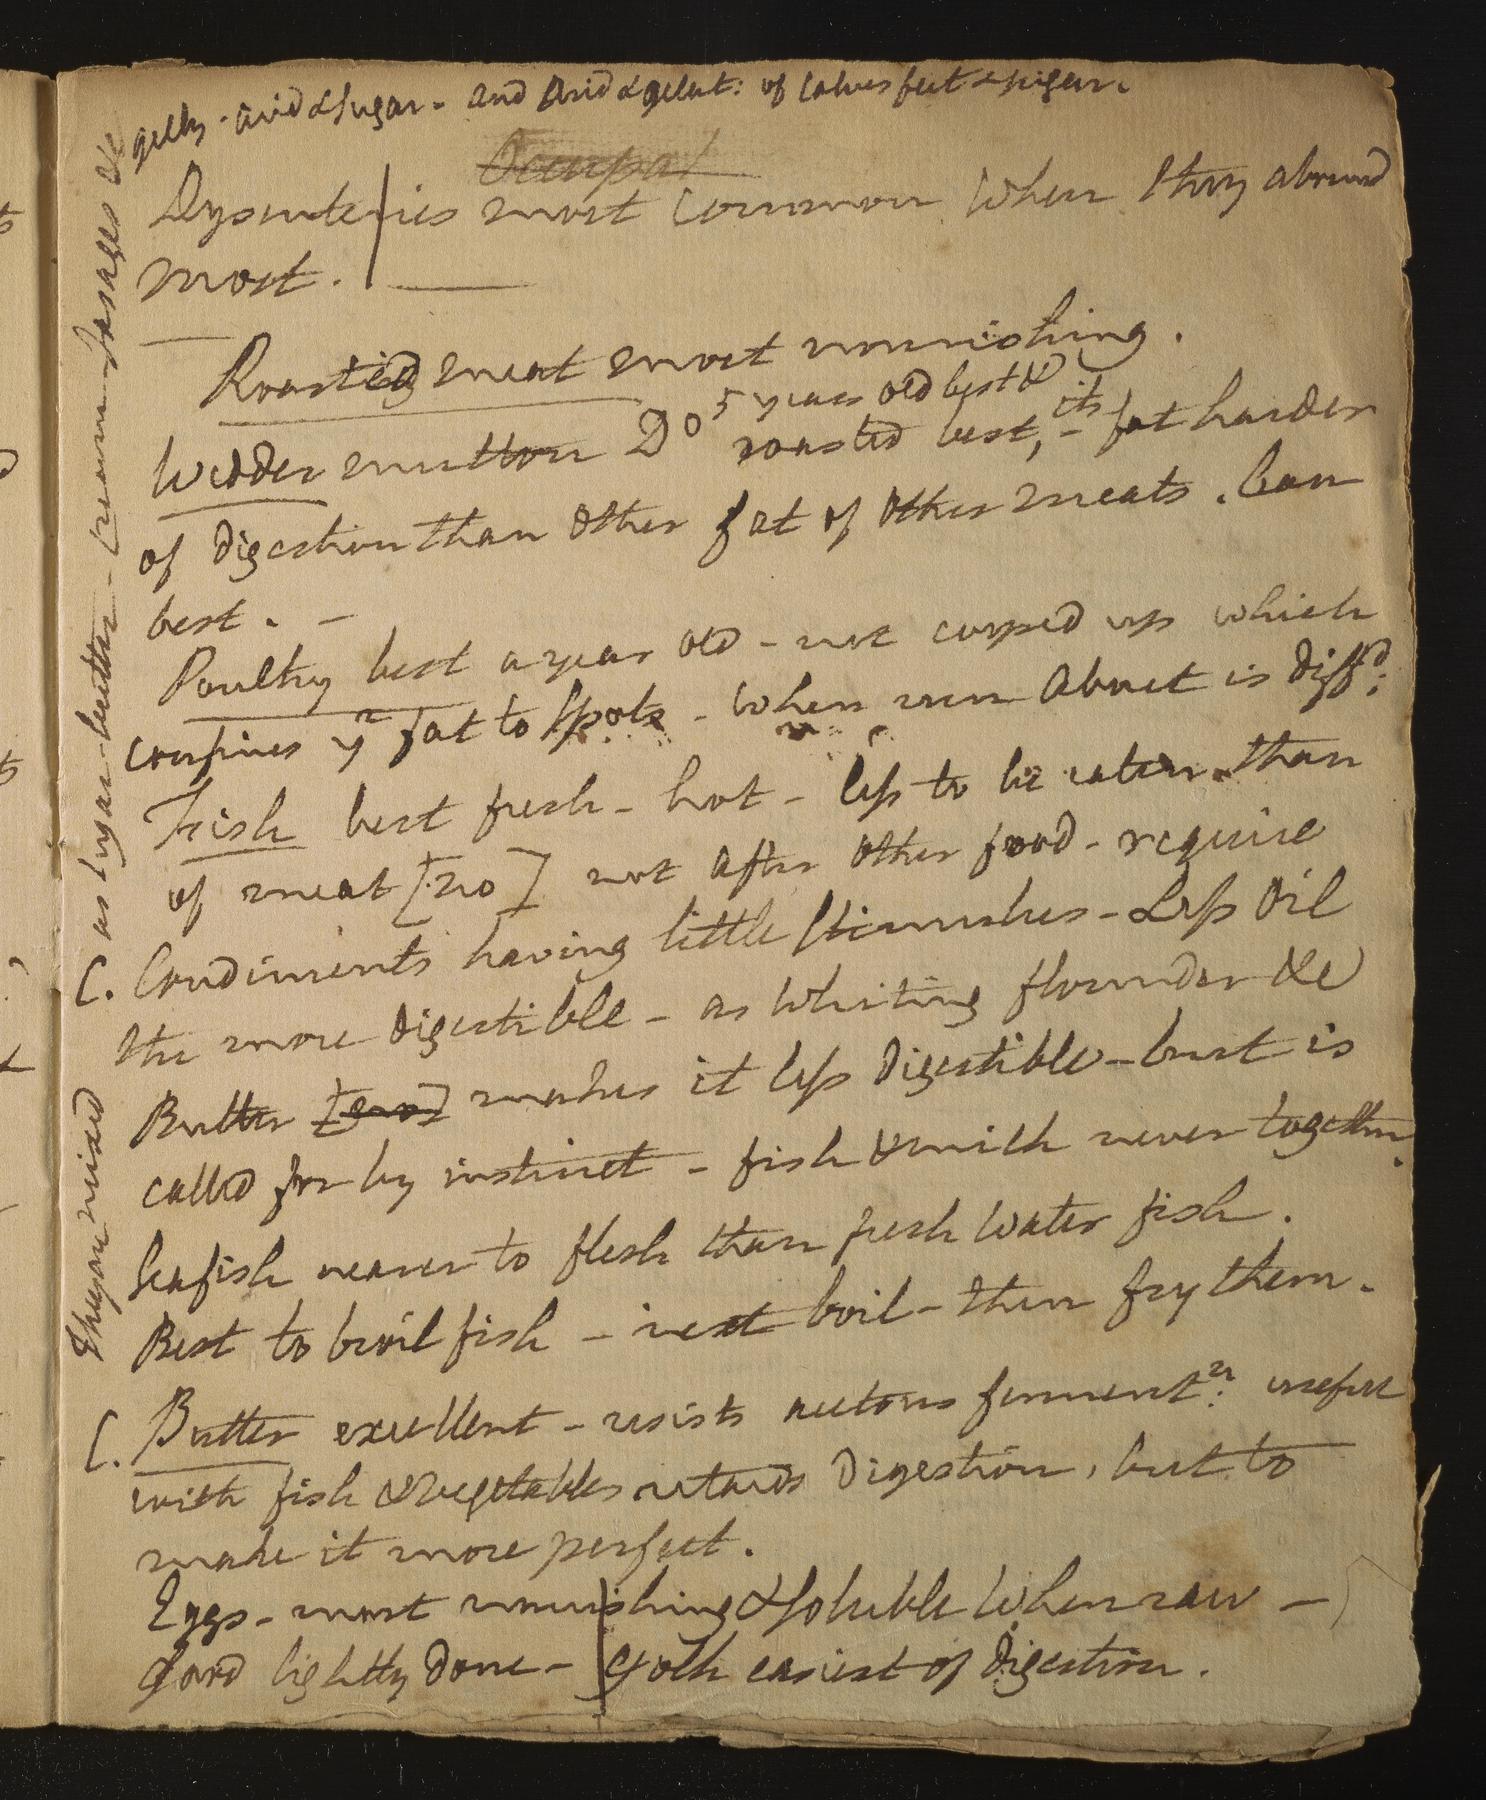 gelly - acid & sugar - and Acid & gelat: of calves feet & sugar.
Occupat
Dysenteries most common when they abound
most.
Roasted meat most nourishing.
5 years old best &
Wedder mutton Do roasted best, - its fat harder
of digestion than other fat of other meats. Lean
best. -
Poultry best a year old - not cooped up which
confines yr fat to spots - when run about is diffd:
Fish best fresh - hot - less to be eaten than
of meat [no] not after other food - require
Condiments having little stimulus - Less Oil
the more digestible - as Whiting flounder &c
Butter [no] makes it less digestible - but is
called for by instinct - fish & milk never together.
Seafish nearer to flesh than fresh water fish.
Best to broil fish - next boil - then fry them.
C. Butter excellent - resists acetous fermentn: useful
with fish & vegetables retards Digestion, but to
make it more perfect.
Eggs - most nourishing & soluble when raw -
good lightly done - yolk easiest of digestion.
C. as sugar - butter - cream - sausages &c
mixed